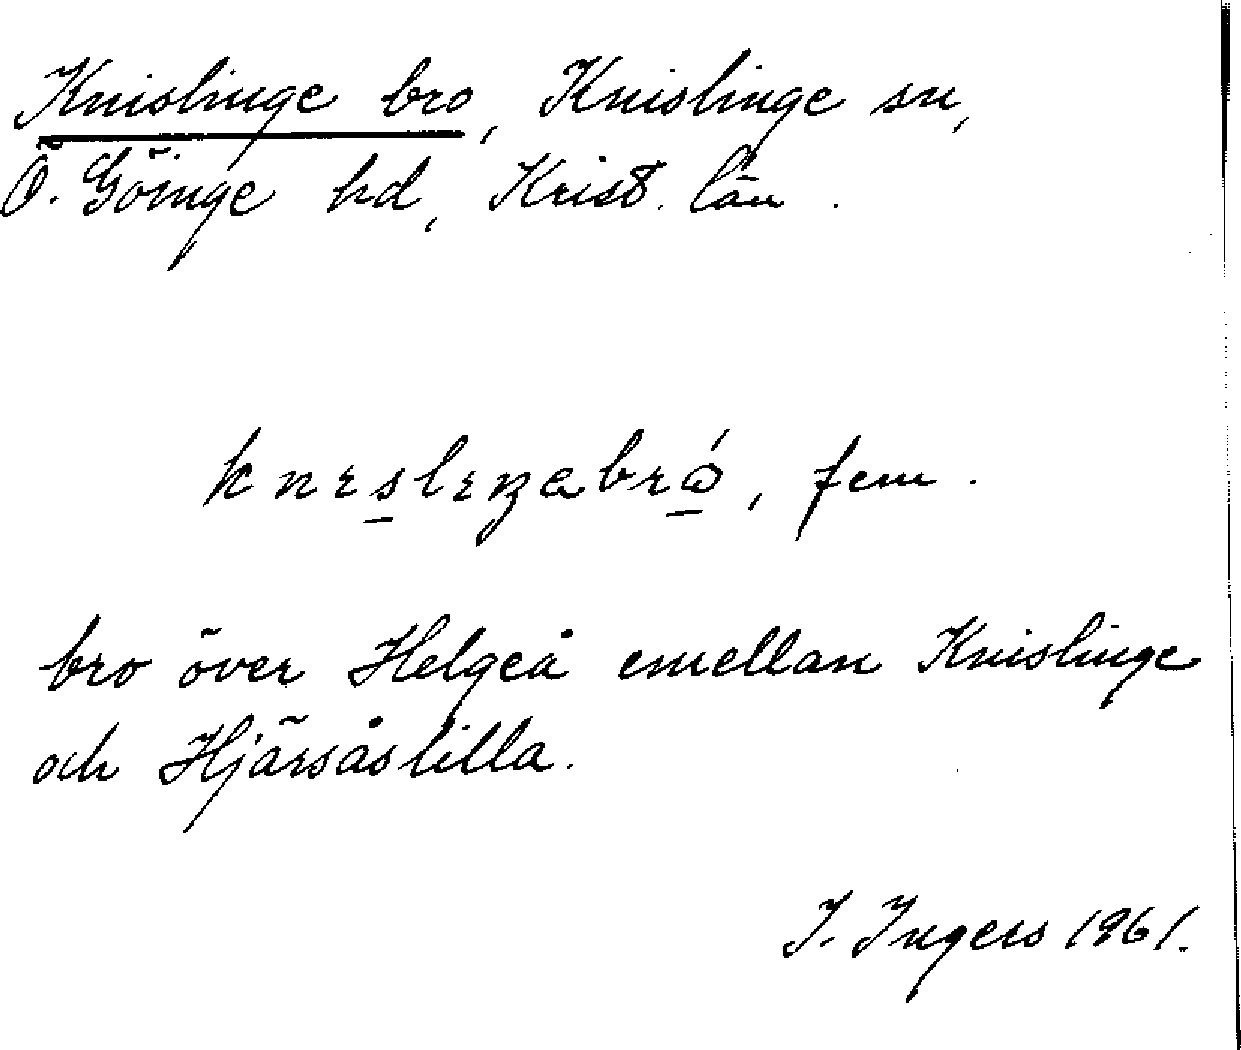 Knislinge bro, Knislinge sn,
Ö. Göinge hd, Krist. län.
knɛslɛŋabrǻ, fem.
bro över Helgeå emellan Knislinge
och Hjärsåslilla.
I. Ingers 1961.